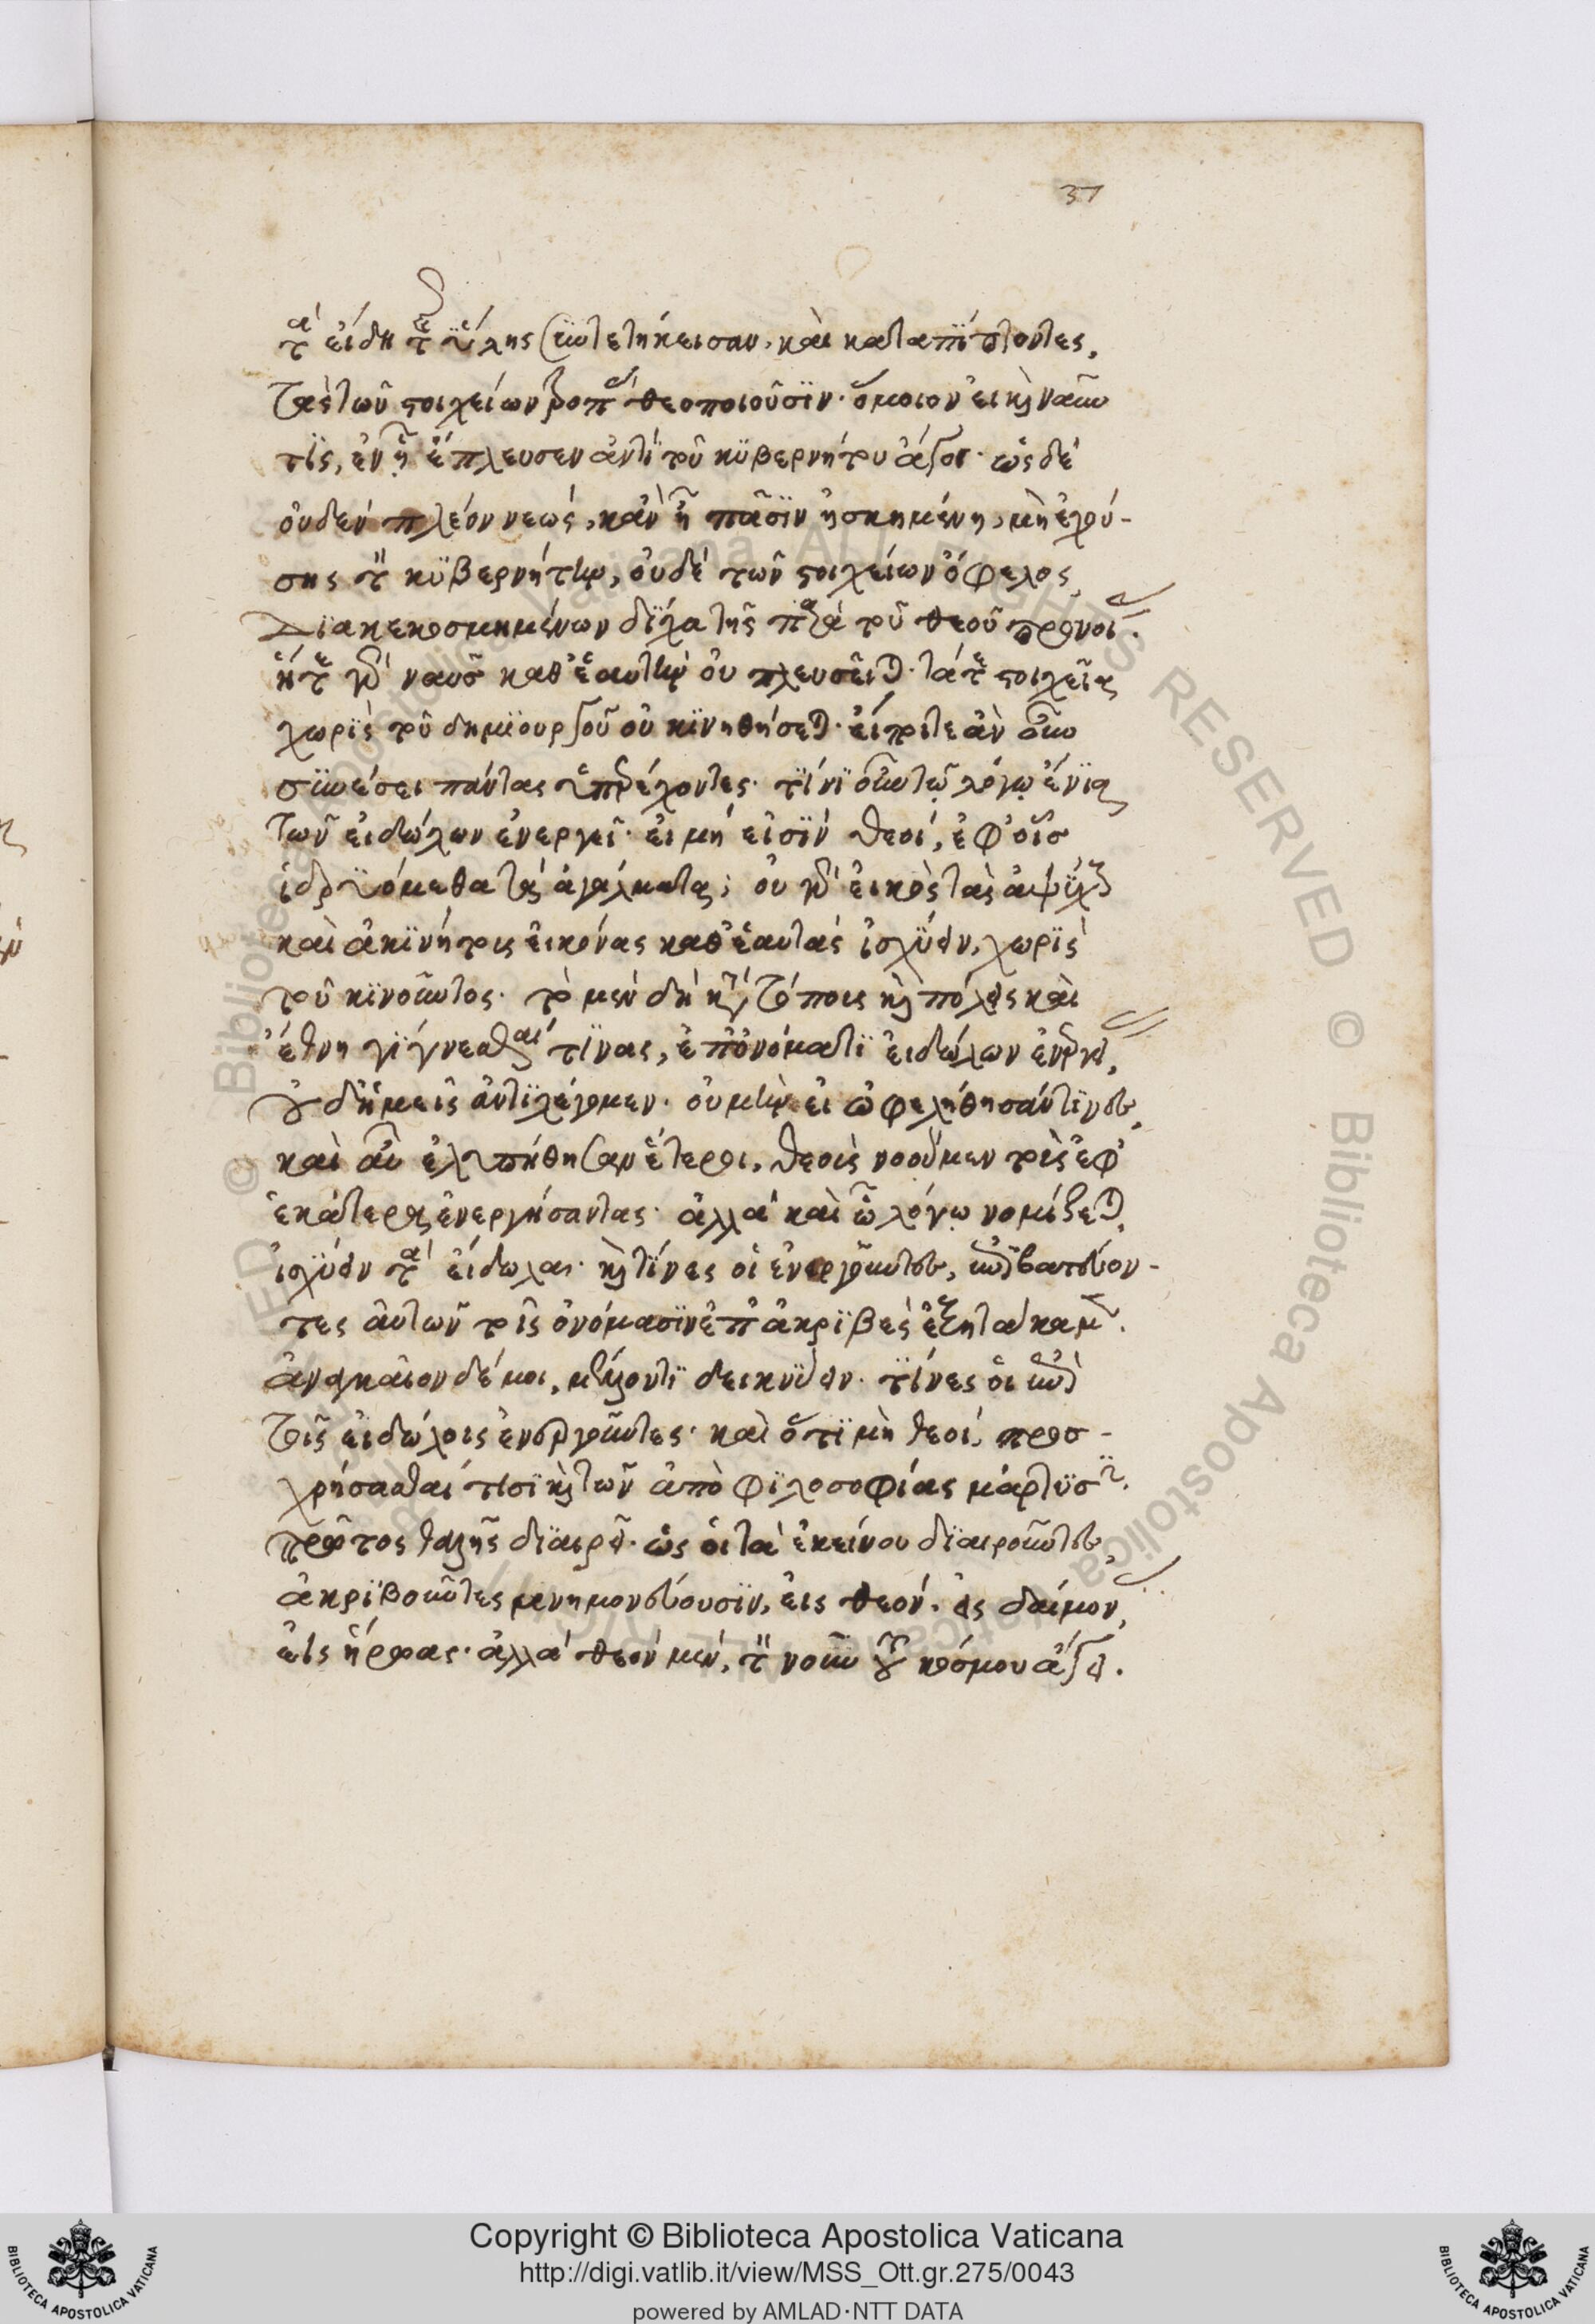 37
τὰ εἴδη τῆς ὕλης συντετήκεισαν, καὶ καταπίπτοντες,
τὰς τῶν στοιχείων τροπὰς θεοποιοῦσϊν· ὅμοιον εἰ καὶ ναῦν
τίς, ἐν ᾗ ἔπλευσεν ἀντὶ τοῦ κϋβερνήτου ἄγοι· ὡς δὲ
οὐδὲν πλέον νεὼς, κἂν ᾖ πᾶσϊν ἠσκημένη, μὴ ἐχού-
σης τὸν κϋβερνήτην, οὐδὲ τῶν στοιχείων ὄφελος,
Διακεκοσμημένων δίχα τῆς παρὰ τοῦ θεοῦ προνοίας.
ἥ τε γὰρ ναῦς καθ' ἑαυτὴν οὐ πλευσεῖται· τά τε στοιχεῖα
χωρὶς τοῦ δημϊουργοῦ οὐ κϊνηθήσεται· εἴποιτε ἂν οὖν
συνέσει πάντας ὑπερέχοντες· τίνϊ οὖν τῷ λόγῳ ἔνϊα
τῶν εἰδώλων ἐνεργεῖ· εἰ μὴ εἰσϊν θεοί, ἐφ' οἷς
ἱδρυόμεθα τὰ ἀγάλματα; οὐ γὰρ εἰκὸς τὰς ἀψύχους
καὶ ἀκϊνήτους εἰκόνας καθ' ἑαυτὰς ἰσχύειν, χωρὶς
τοῦ κϊνοῦντος· τὸ μὲν δὴ κατὰ τόπους καὶ πόλεις καὶ
ἔθνη γίγνεσθαί τϊνας, ἐπ' ὀνόματι εἰδώλων ἐνεργείας,
οὐδ' ἡμεῖς ἀντϊλέγομεν· οὐ μὴν εἰ ὠφελήθησάν τϊνες,
καὶ αὖ ἐλυπήθησαν ἕτεροι, θεοὺς νοοῦμεν τοὺς ἐφ'
ἑκάτερα ἐνεργήσαντας· ἀλλὰ καὶ ᾧ λόγῳ νομίζεται
ἰσχύειν τὰ εἴδωλα· καὶ τίνες οἱ ἐνεργοῦντες, ἐπιβατεύον-
τες αὐτῶν τοῖς ὀνόμασϊν ἐπ' ἀκρϊβὲς ἐξητάκαμεν.
ἀναγκαῖον δέ μοι, μέλλοντϊ δεικνύειν· τίνες οἱ ἐπὶ
τοῖς εἰδώλοις ἐνεργοῦντες· καὶ ὅτι μὴ θεοί, προσ-
χρήσασθαί τϊσϊ καὶ τῶν ἀπὸ φϊλοσοφίας μάρτυσϊν.
πρῶτος θαλῆς δϊαιρεῖ· ὡς οἱ τὰ ἐκείνου δϊαιροῦντες
ἀκρϊβοῦντες μνημονεύουσϊν, εἰς θεόν· εἰς δαίμονας,
εἰς ἥρωας· ἀλλὰ θεὸν μὲν, τὸν νοῦν τοῦ κόσμου ἄγει.
Copyright © Biblioteca Apostolica Vaticana
http://digi.vatlib.it/view/MSS_Ott.gr.275/0043
powered by AMLAD·NTT DATA